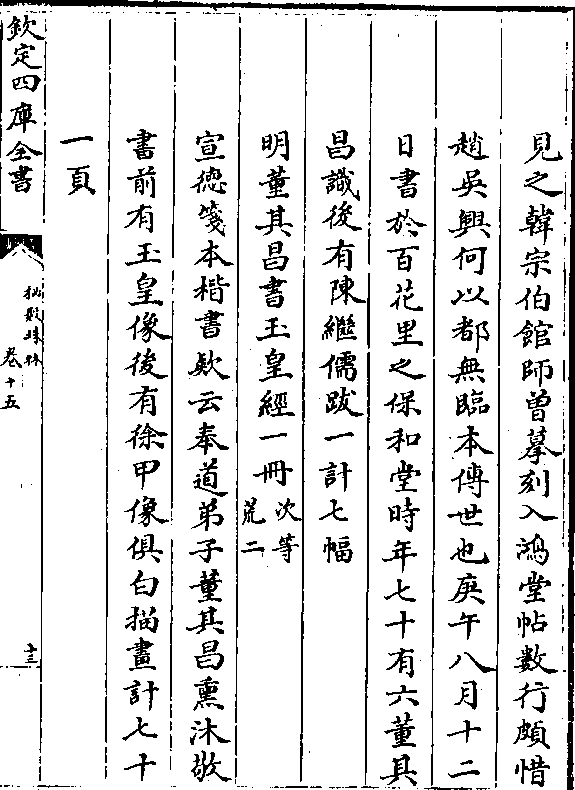 見之韓宗伯館師曾摹刻入鴻堂帖數行頗惜
趙吳興何以都無臨本傳世也庚午八月十二
日書於百花里之保和堂時年七十有六董其
昌識後有陳繼儒跋一計七幅
明董其昌書玉皇經一冊次等荒二
宣德箋本楷書欵云奉道弟子董其昌熏沐敬
書前有玉皇像後有徐甲像俱白描畫計七十
一頁
欽定四庫全書
祕殿珠林
卷十五
十三